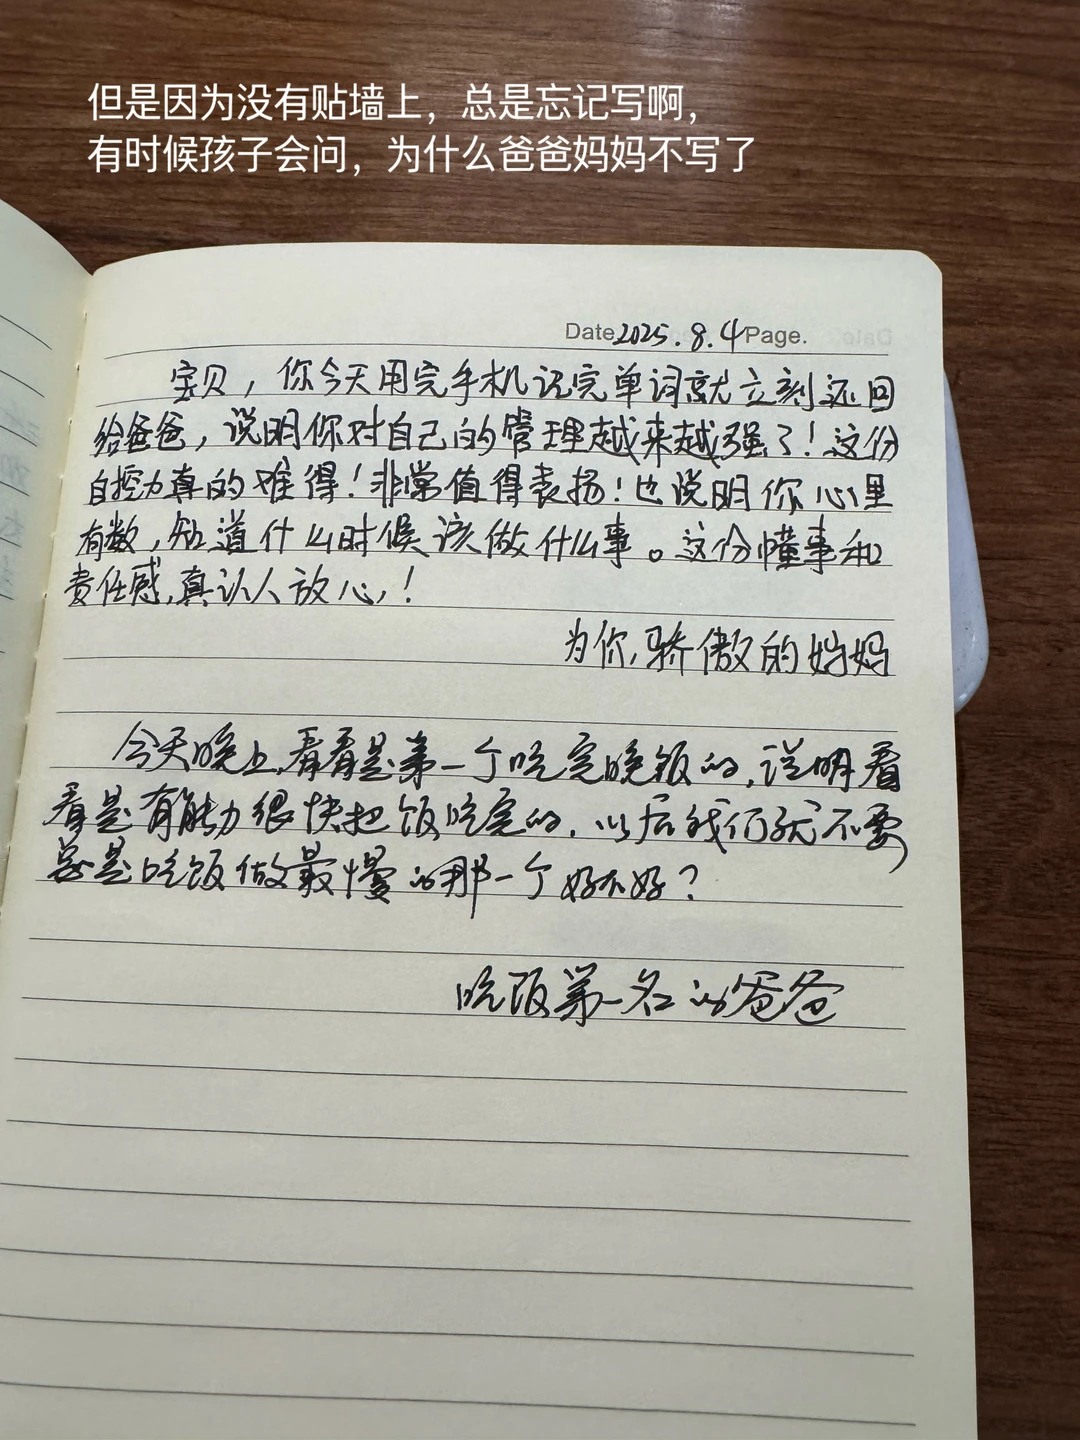 但是因为没有贴墙上，总是忘记写啊，
有时候孩子会问，为什么爸爸妈妈不写了
Date 2025.8.4 Page.
宝贝，你今天用完手机记完单词就立刻还回
给爸爸，说明你对自己的管理越来越强了！这份
自控力真的难得！非常值得表扬！也说明你心里
有数，知道什么时候该做什么事。这份懂事和
责任感，真让人放心！
为你骄傲的妈妈
今天晚上，看看是第一个吃完晚饭的，说明看
看是有能力很快把饭吃完的，以后我们就不要
总是吃饭做最慢的那一个好不好？
吃饭第一名的爸爸